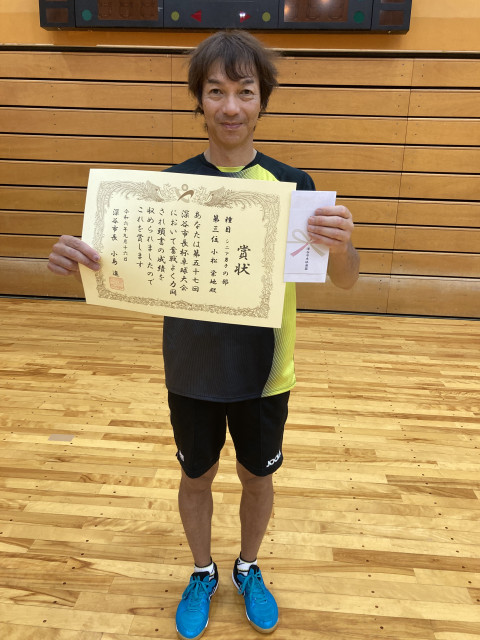 賞状
種目 シニア男子の部
第三位 小松 栄地殿
あなたは第五十七回
深谷市長杯卓球大会
において奮戦よく力闘
され頭書の成績を
収められましたので
これを賞します
令和六年九月十六日
深谷市長 小島 進
JOOLA